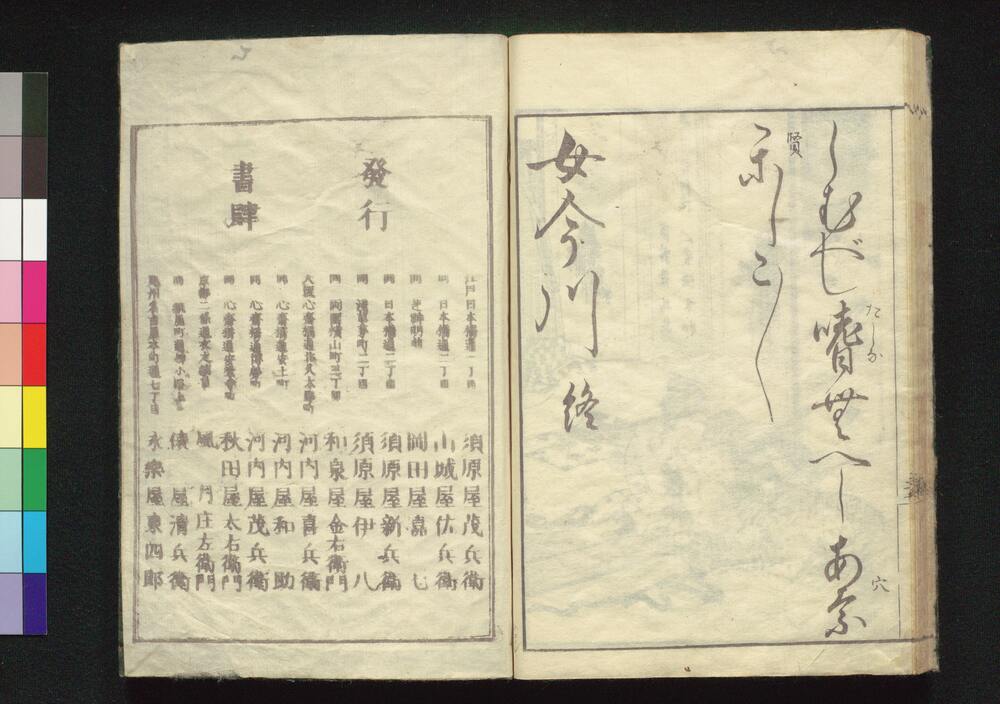 しむべし嗜無へしあ奈
たしな
穴
賢
かしこ〳〵
女今川 終
發行
書肆
江戸日本橋通一丁目 須原屋茂兵衛
同 日本橋通二丁目 山城屋佐兵衛
同 芝神明前 岡田屋嘉七
同 日本橋通二丁目 須原屋新兵衛
同 淺草茅町二丁目 須原屋伊八
同 両國横山町三丁目 和泉屋金右衛門
大阪心齋橋通北久太郎町 河内屋喜兵衛
同 心齋橋通安土町 河内屋和助
同 心齋橋通博勞町 河内屋茂兵衛
同 心齋橋通安堂寺町 秋田屋太右衛門
京都二條通衣之棚 風月庄左衛門
同 俵屋清兵衛
尾州名古屋本町通七丁目 永樂屋東四郎